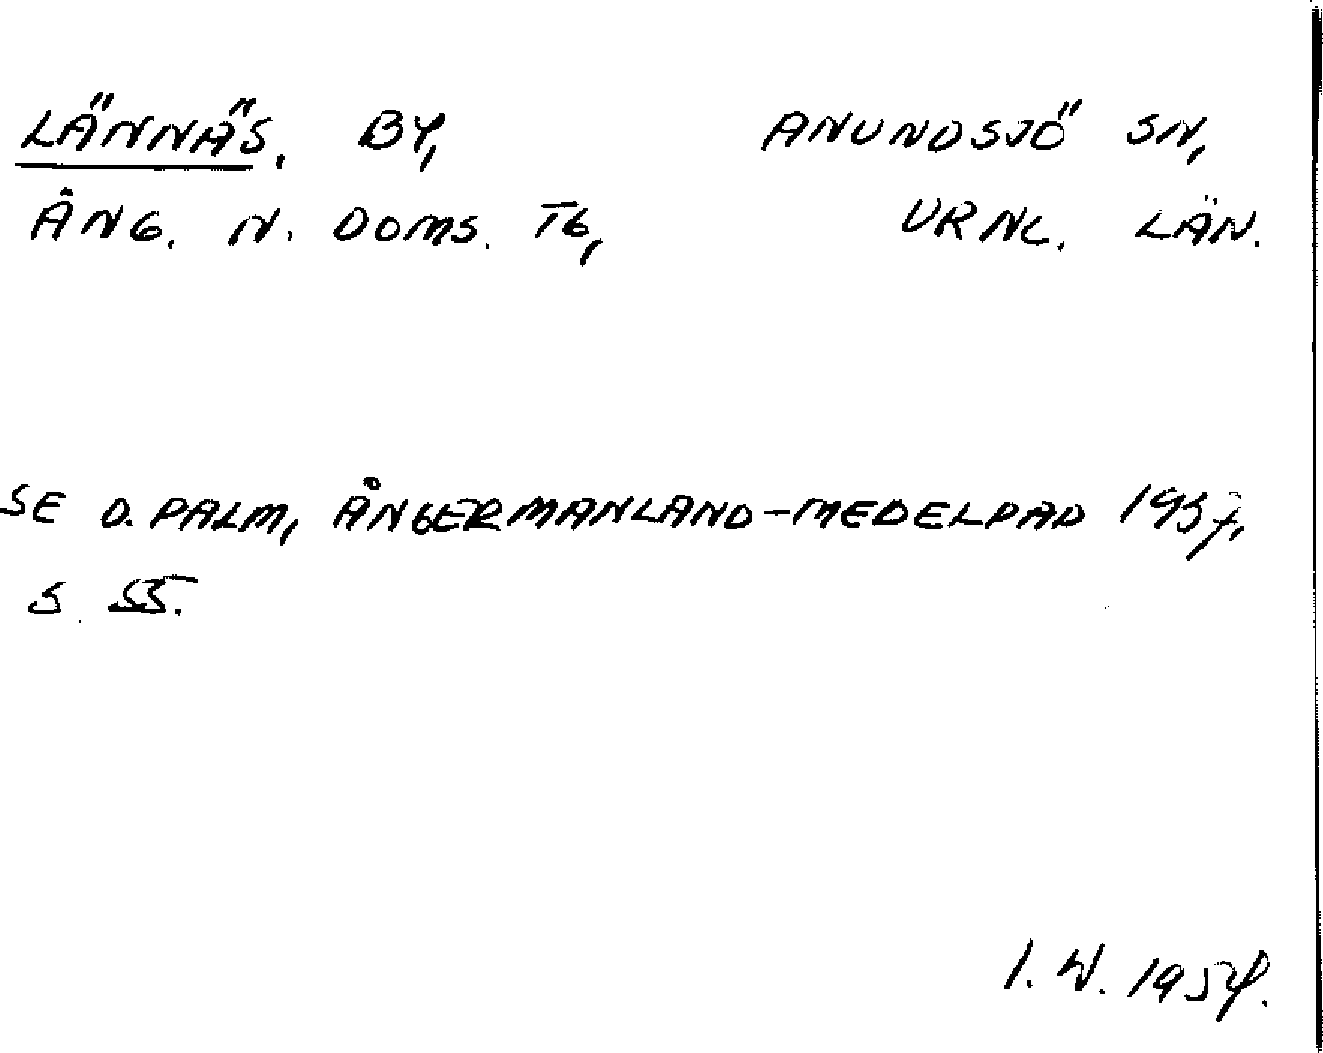 LÄNNÄS. BY, ANUNDSJÖ SN,
ÅNG. N. DOMS. TG, VRNL. LÄN.
SE D. PALM, ÅNGERMANLAND-MEDELPAD 1937,
S. 55.
I. W. 1954.